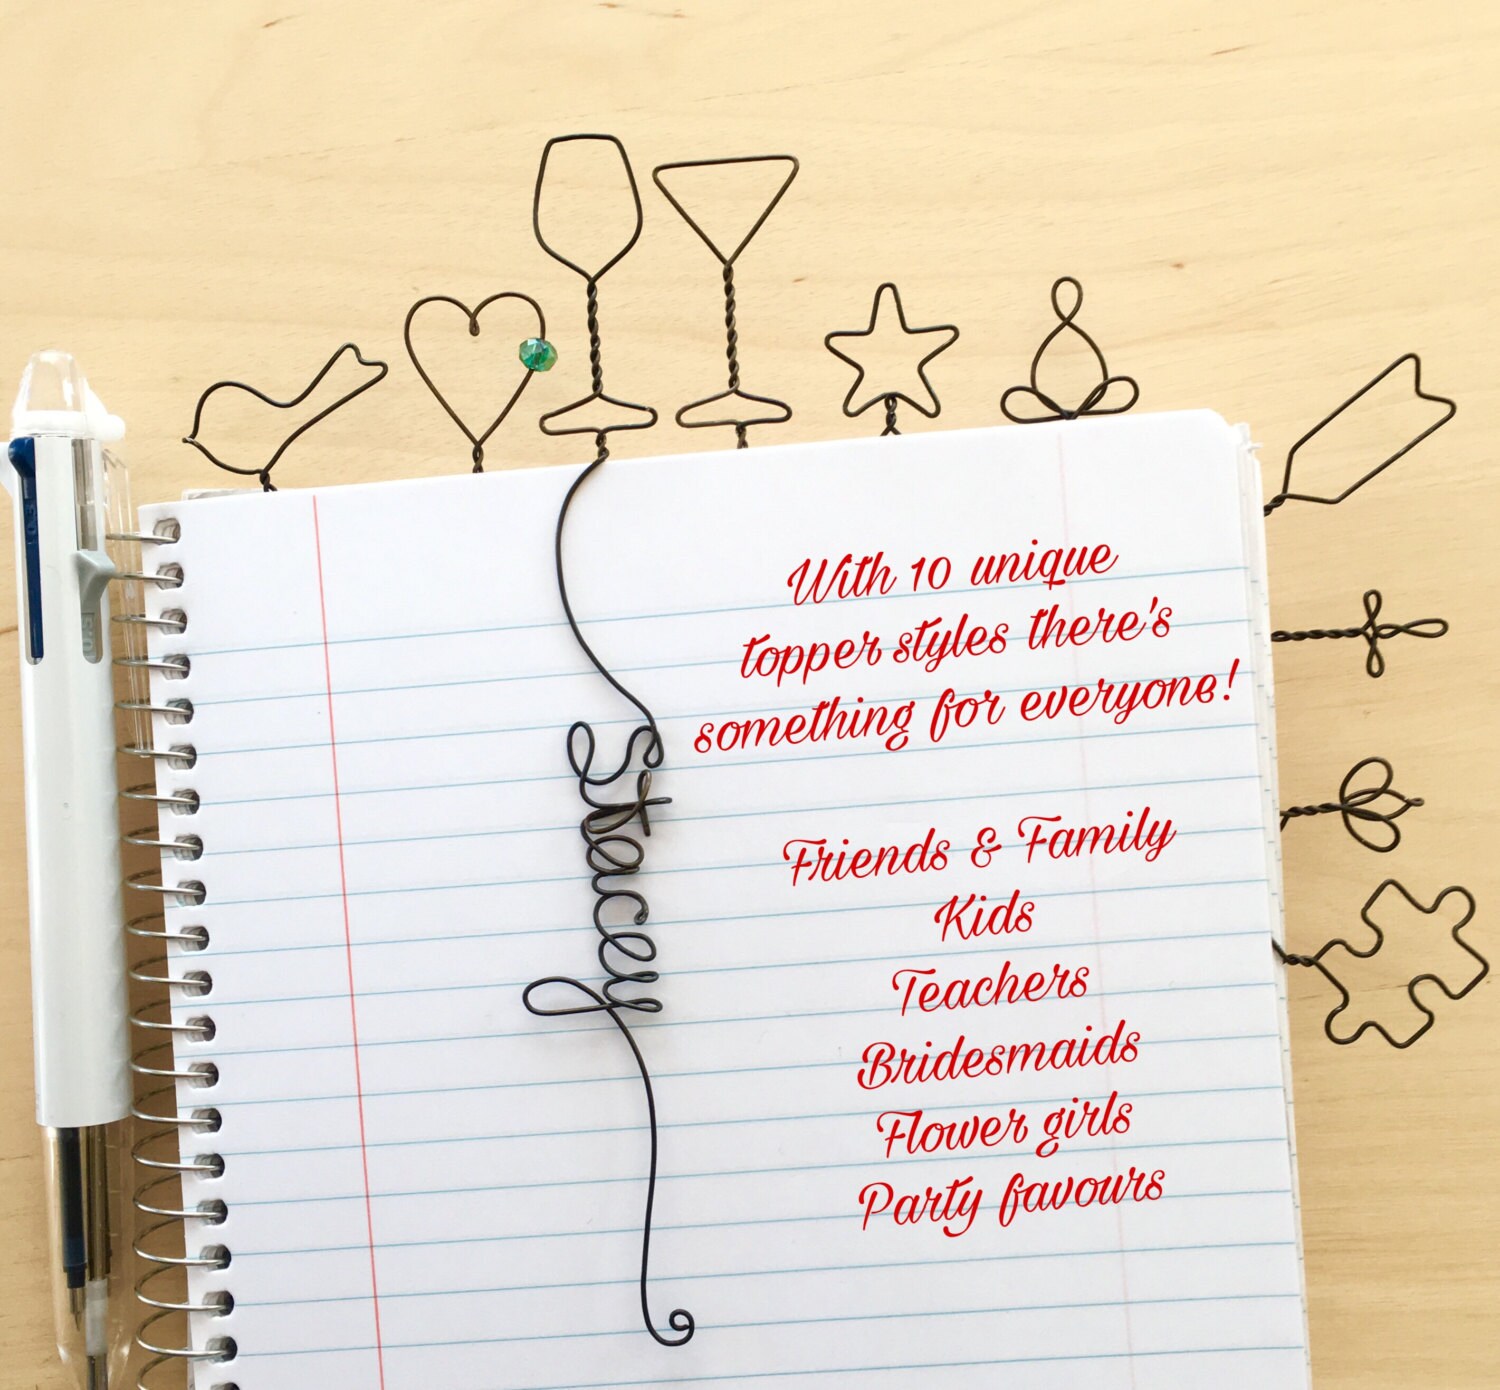 With 10 unique
topper styles there's
something for everyone!
Friends & Family
Kids
Teachers
Bridesmaids
Flower girls
Party favours
Stacey
0.5